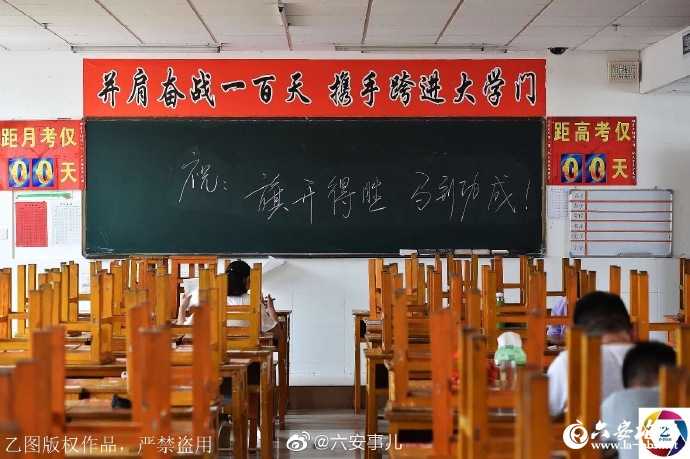 并肩奋战一百天 携手跨进大学门
距月考仅
00天
距高考仅
00天
祝：旗开得胜 马到功成！
乙图版权作品，严禁盗用
@六安事儿
六安